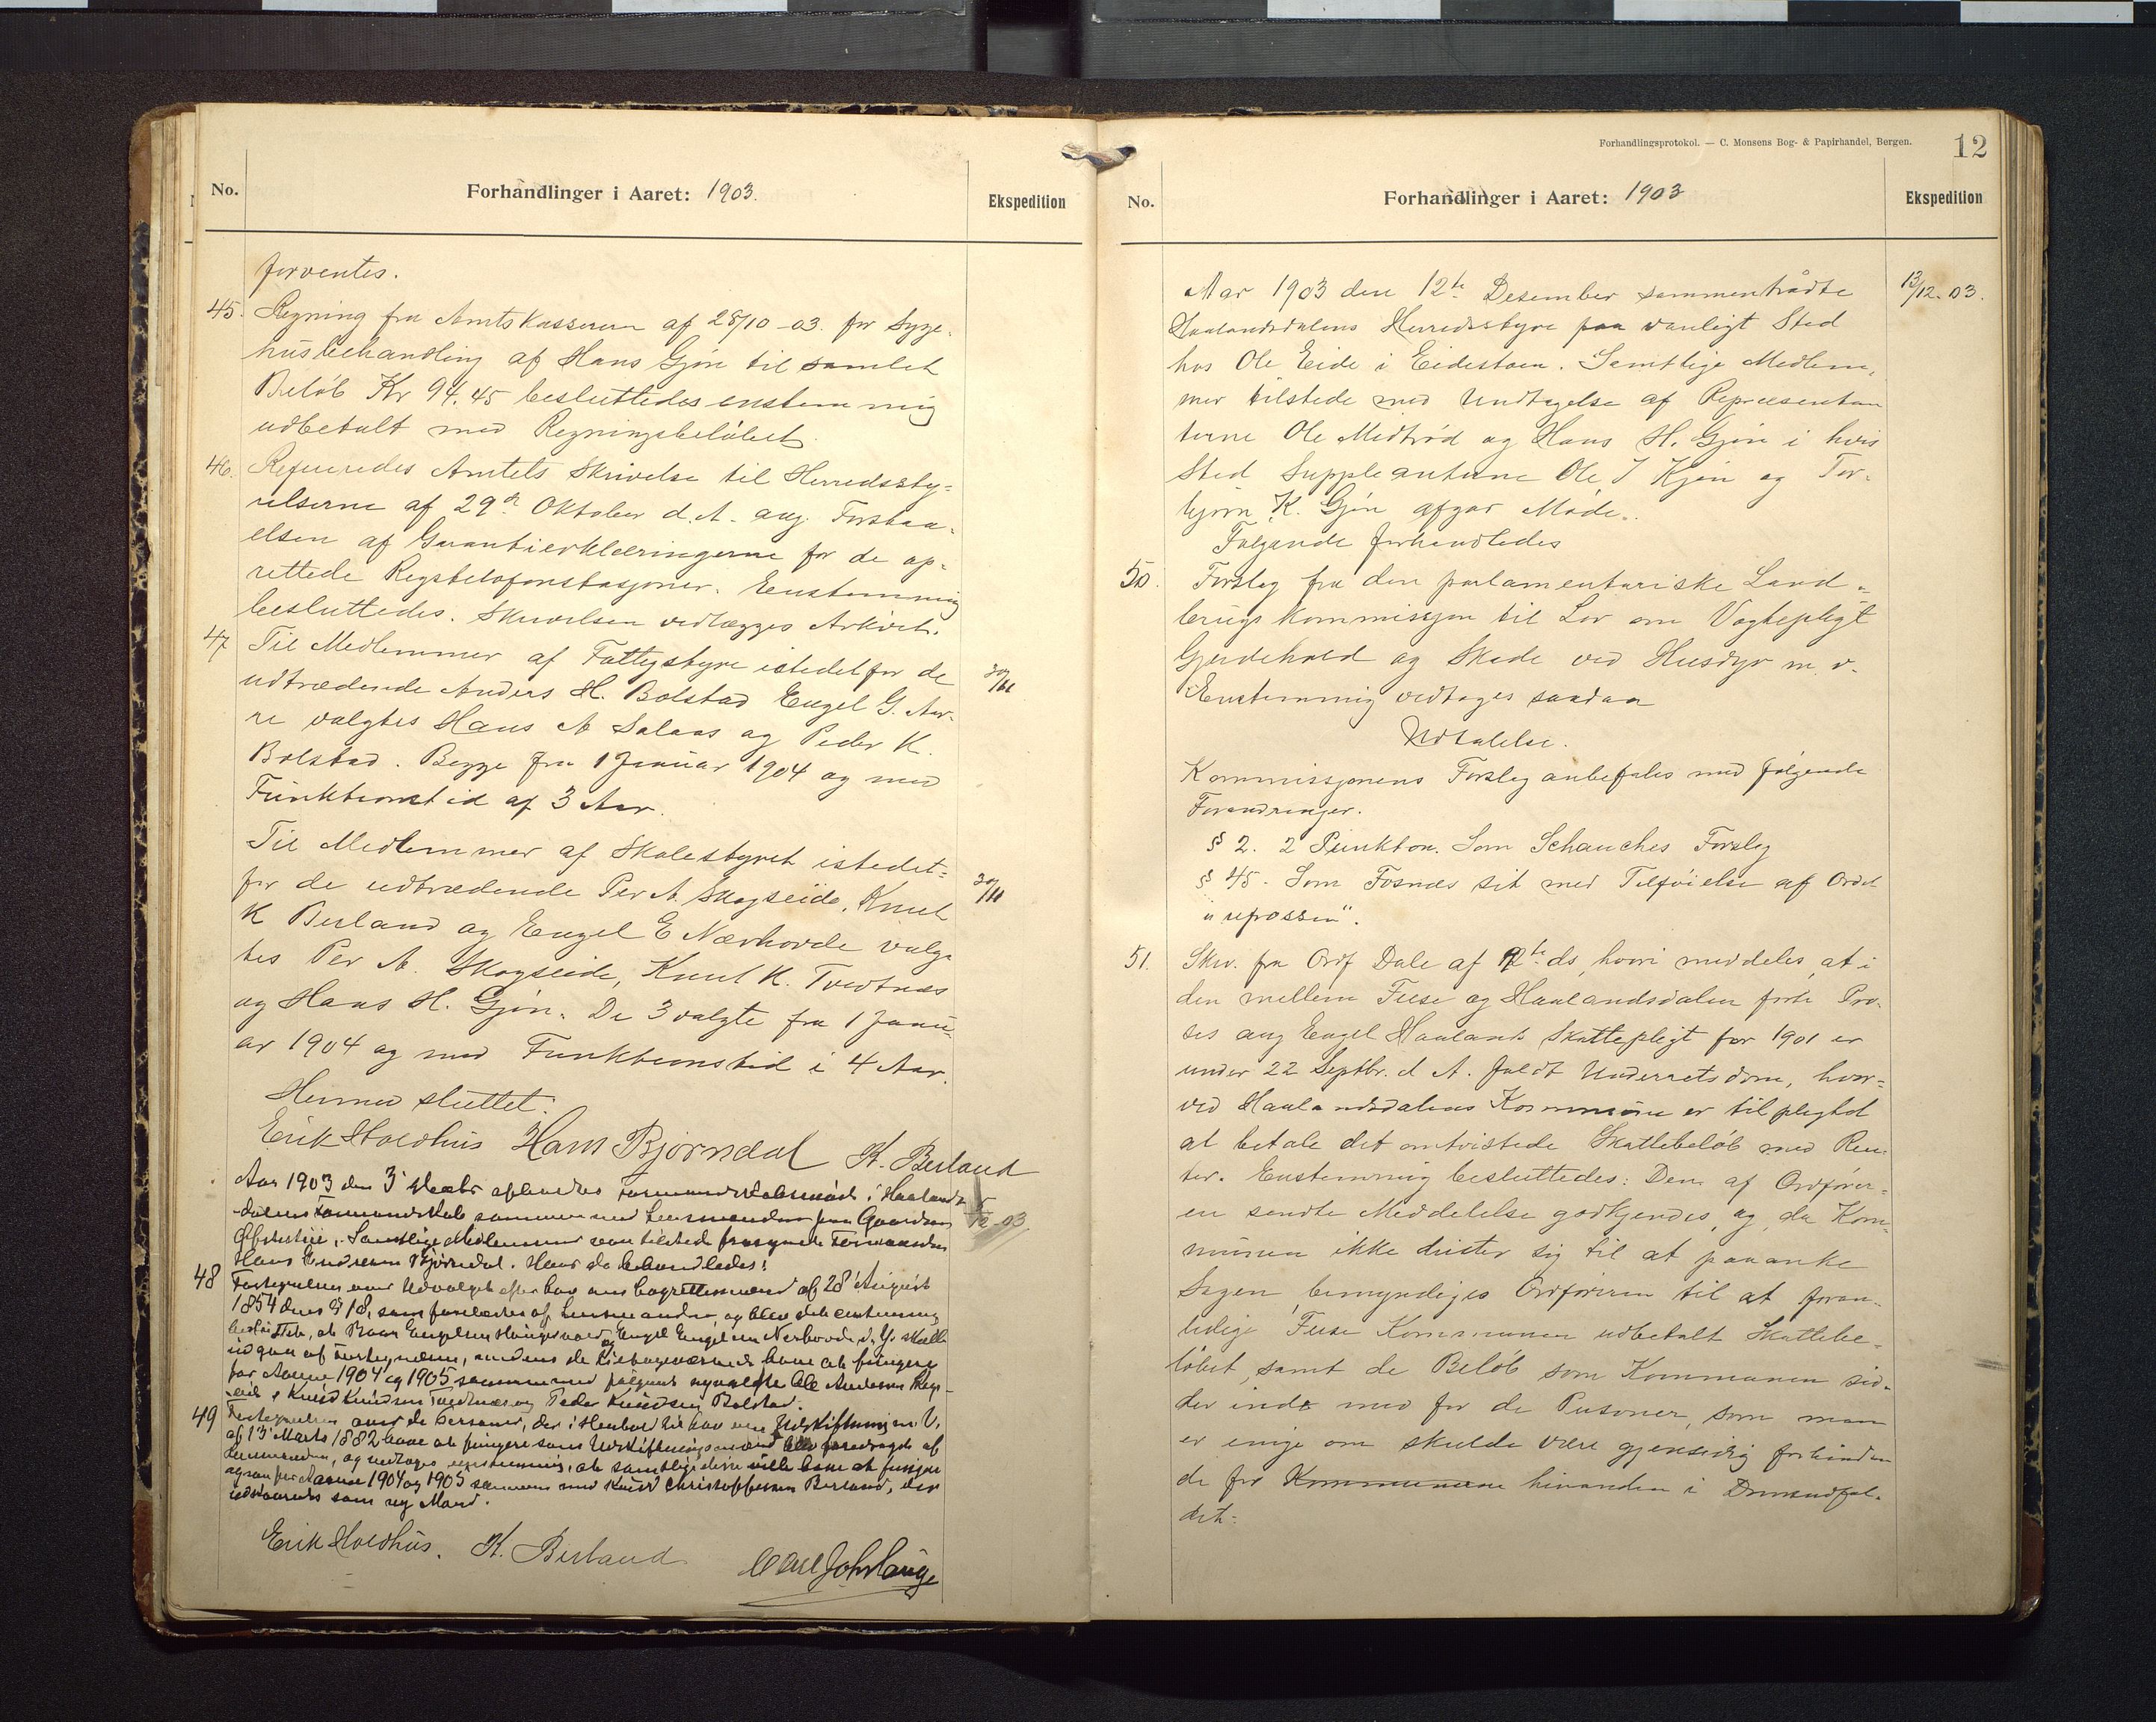 No.
Forhandlinger i Aaret: 1903.
Ekspedition
forventes.
45. Regning fra Amtskassereren af 28/10-03. for Syge-
husbehandling af Hans Gjøn til samlet
Beløb Kr 94.45 besluttedes enstemmig
udbetalt med Regningsbeløbet.
46. Refereredes Amtets Skrivelse til Herredssty-
relserne af 29de Oktober d. A. ang. Forstaa-
elsen af Garantierklæringerne for de op-
rettede Rigstelefonstasjoner. Enstemmig
besluttedes. Skrivelsen vedlægges Arkivet.
47 Til Medlemmer af Fattigstyre istedetfor de
udtrædende Anders H. Bolstad Engel G. Aar-
re valgtes Hans A Salaas og Peder K.
Bolstad. Begge fra 1 Januar 1904 og med
Funktionstid af 3 Aar.
30/11
Til Medlemmer af Skolestyret istedet-
for de udtrædende Per A. Skogseide, Knut
K Berland og Engel E Nærhovde valg-
tes Per A. Skogseide, Knut K. Tvedtnæs
og Hans H. Gjøn. De 3 valgte fra 1 Janu-
ar 1904 og med Funktionstid i 4 Aar.
30/11
Hermed sluttet.
Erik Holdhus Hans Bjørndal K. Berland
Aar 1903 den 3 Decbr afholdtes Formandskabsmøde i Haalands-
dalens Formandskab sammen med Lensmanden paa Gaarden
Samtlige Medlemmer var tilstede Formanden
Hans Endresen Bjørndal. Hvor da behandledes:
12-03.
48 Fortegnelsen over Udvalget efter Lov om Lagrettesmænd af 28 August
1854 dens § 18, som forelæstes af Lensmanden, og blev det enstemmig
besluttet, at Engelsen og Engel Engelsen Nerhovde skulle
udgaa af Fortegnelsen, medens de tilbageværende have at fungere
for Aarene 1904 og 1905 sammen med følgende nyvalgte Ole Andersen
Knud Knudsen Tvedtnæs og Peder Knudsen Bolstad.
49 Fortegnelsen over de Personer, der i Henhold til Lov om Udskiftning m. V.
af 13 Marts 1882 have at fungere som Udskiftningsmænd blev foredraget af
Lensmanden, og vedtoges enstemmig, at samtlige disse ville have at fungere
ogsaa for Aarene 1904 og 1905 sammen med Knud Christoffersen Berland, der
som ny Mand.
Erik Holdhus. K. Berland
Forhandlingsprotokol. — C. Monsens Bog- & Papirhandel, Bergen.
12
No.
Forhandlinger i Aaret: 1903
Ekspedition
Aar 1903 den 12te Desember sammentrådte
Haalandsdalens Herredsstyre paa vanligt Sted
hos Ole Eide i Eidestøen. Samtlige Medlem-
mer tilstede med Undtagelse af Repræsentan
terne Ole Midtrød og Hans H. Gjøn i hvis
Sted Suppleanterne Ole J Kjøn og Tor-
bjørn K. Gjøn afgav Møde.
13/12-03.
Følgende forhandledes
50. Forslag fra den parlamentariske Land-
brugskommissjon til Lov om Vogtepligt
Gjerdehold og Skade ved Husdyr m. v.
Enstemmig vedtages saadan
Udtalelse.
Kommissjonens Forslag anbefales med følgende
Forandringer.
§ 2. 2 Punktom. Som Schanches Forslag
§ 45. Som Fosnæs sit med Tilføielse af Ordet
51. Skr. fra Ordf Dale af 12te ds, hvori meddeles, at i
den mellem Fuse og Haalandsdalen førte Pro-
ses ang Engel Haalands Skattepligt for 1901 er
under 22 Septbr. d A. faldt Underretsdom, hvor-
ved Haalandsdalens Kommune er tilpligtet
at betale det omtvistede Skattebeløb med Ren-
ter. Enstemmig besluttedes: Den af Ordfører-
en sendte Meddelelse godkjendes, og, da Kom-
munen ikke drister sig til at paaanke
Sagen, bemyndiges Ordføreren til at foran-
ledige Fuse Kommune udbetalt Skattebe-
løbet, samt de Beløb som Kommunen sid-
der inde med for de Personer, som man
er enige om skulde være gjensidig forbinden
de for Kommunerne hinanden i
det.